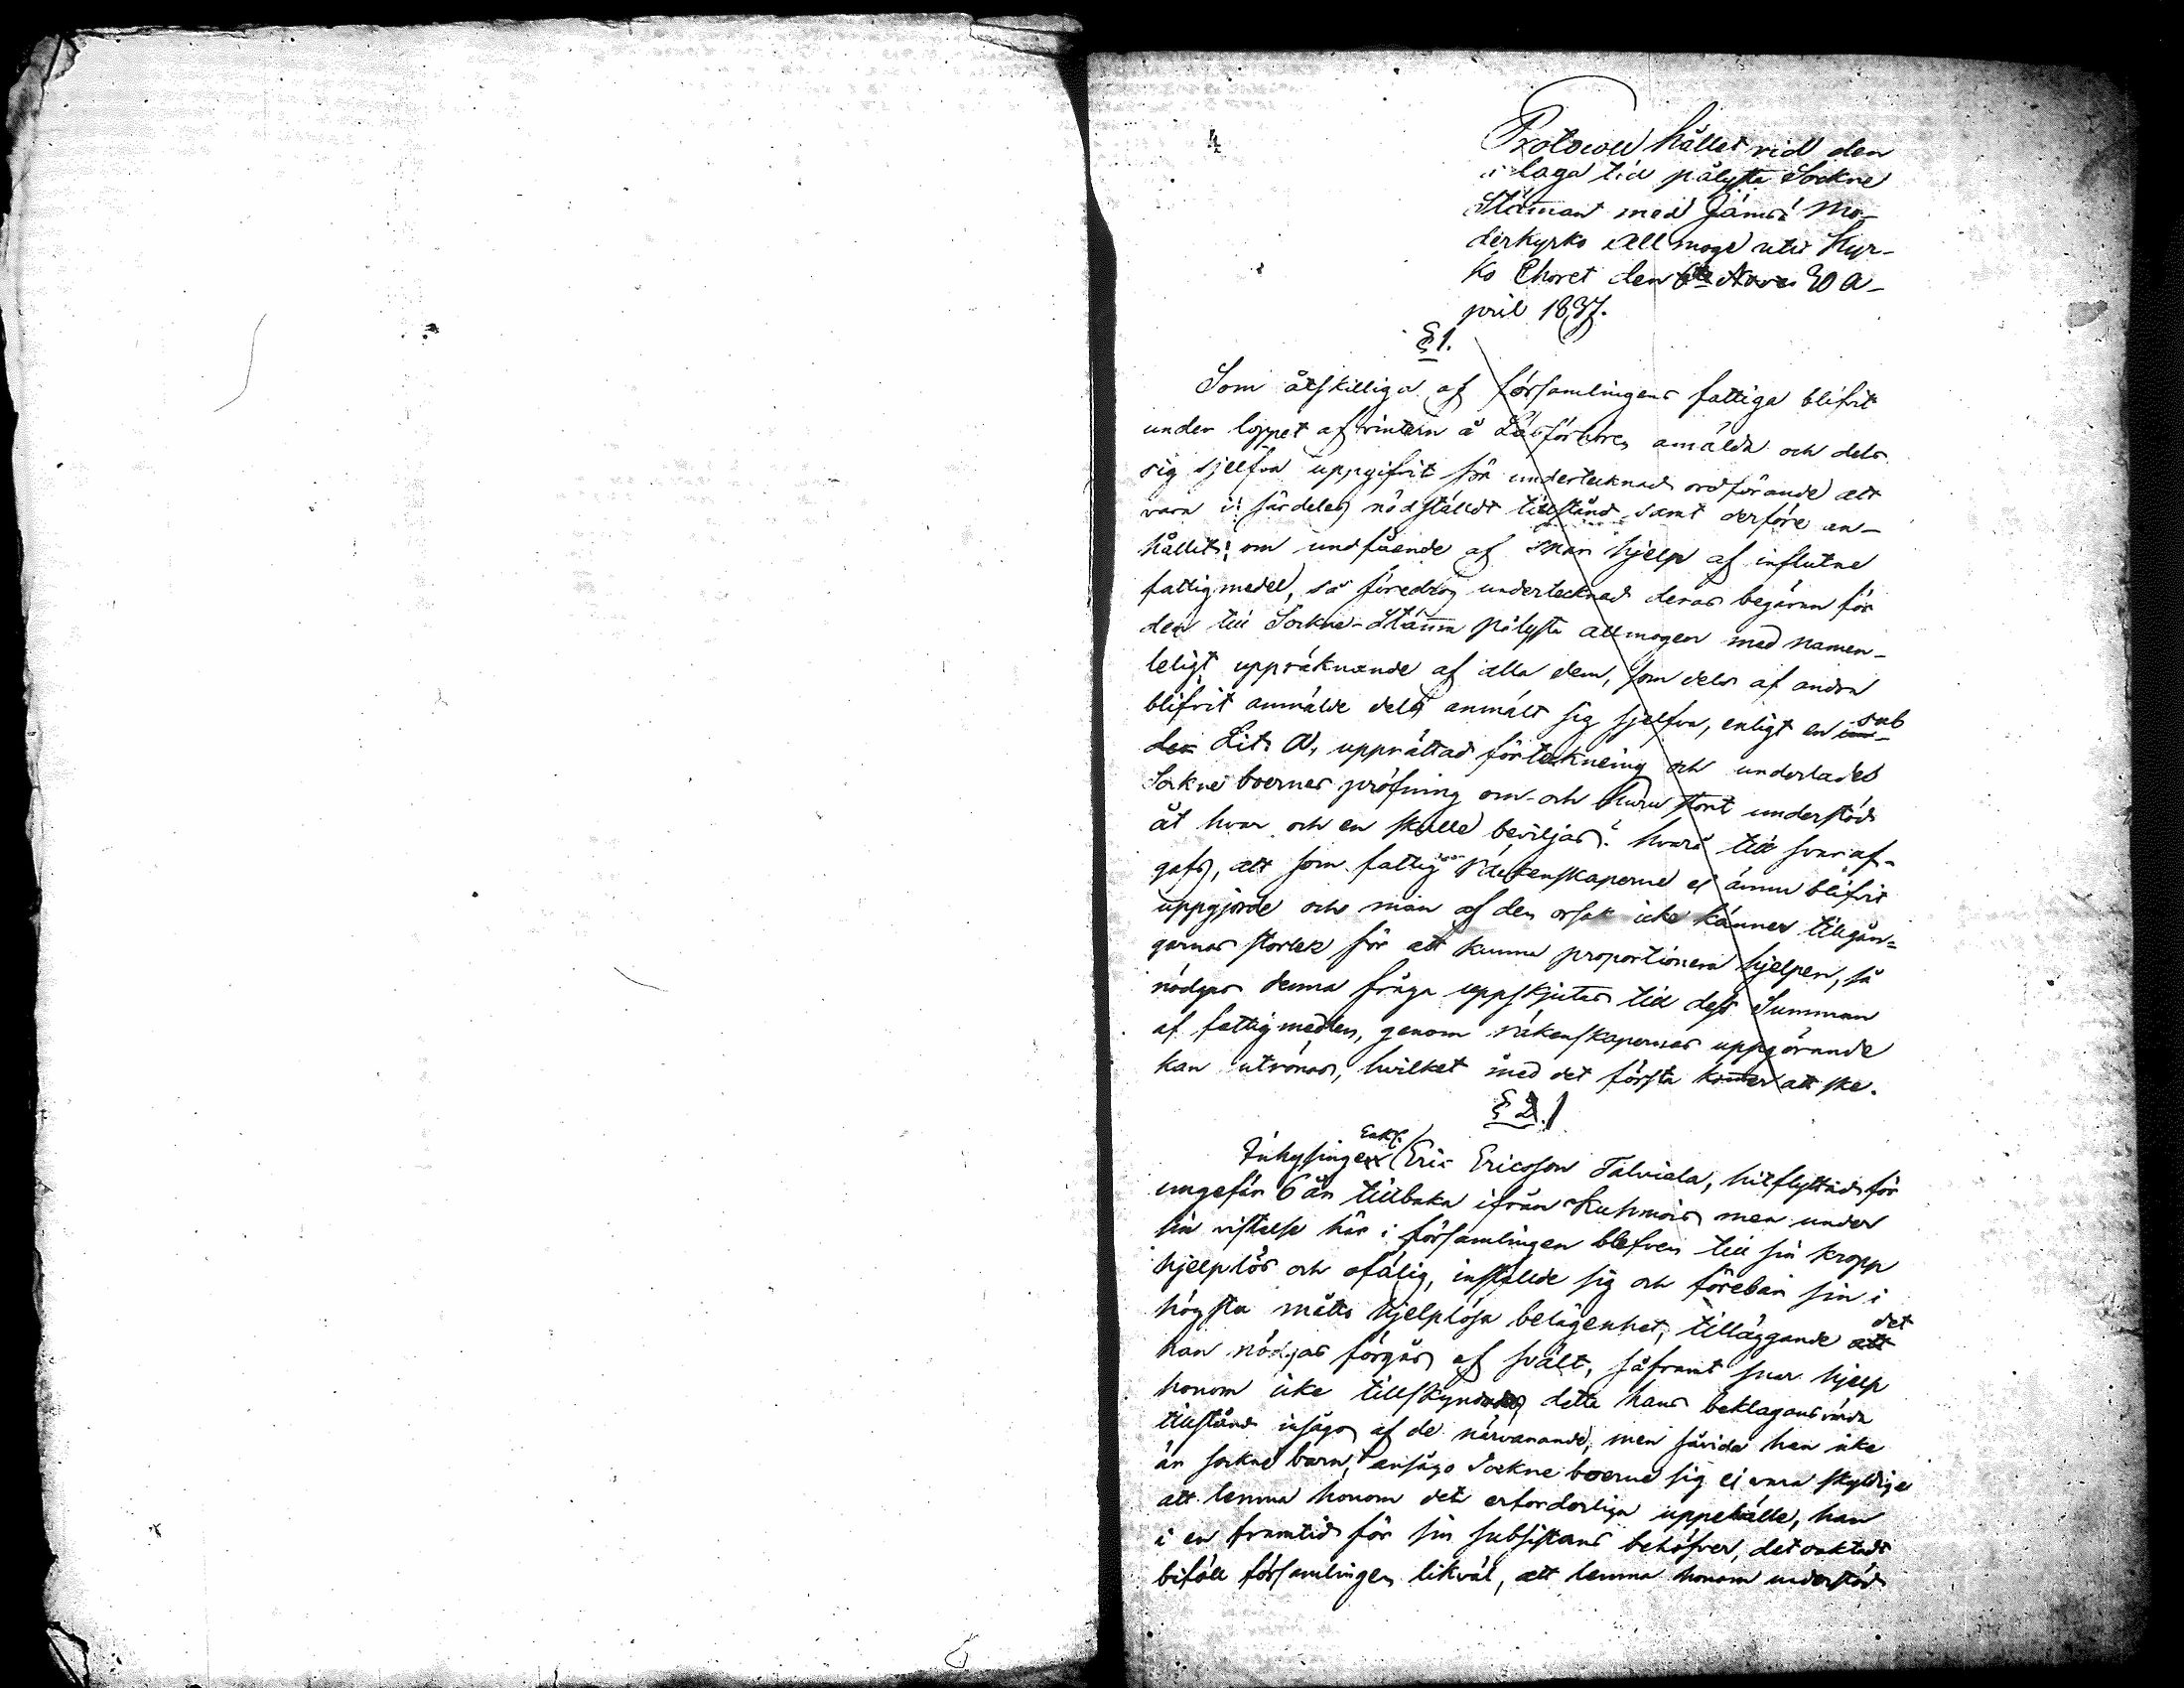 4
Protocoll hållet vid den
i laga tid pålyste Sockne
Stämant med Jämsä Mo-
derkyrko Allmoge uti Kyr-
ko Choret den 6te Nove 30 A-
pril 1837.
§ 1.
Som åtskilliga af församlingens fattiga blifvit
under loppet af vintern å Läsförhören anmälda och dels
sig sjelfva uppgifvit för undertecknad ordförande att
vara i särdeles nödstäldt tillstånd samt derföre an-
hållit om undfående af snar hjelp af influtne
fattigmedel, så föredrog undertecknad deras begäran för
den till Sockne-Stämma pålyste allmogen med namen-
teligt uppräknande af alla dem, som dels af andra
blifvit anmälde dels anmält sig sjelfva, enligt en un- sub
der Litt A, upprättad förteckneing och underlades
Sockne boernes pröfning om och huru stort understöd
åt hvar och en skulle beviljas? hvarå till svar af-
gafs, att som fattig räkenskaperne ej ännu blifvit
uppgjorde och man af den orsak icke känner tillgån-
garnas storlek för att kunna proportionera hjelpen, så
nödgas denna fråga uppskjutas till dess Summan
af fattigmedlen, genom räkenskapernas uppgörande
kan utrönas, hvilket med det första kommer att ske.
§ 2. 1
Inhysingen Enkl. Eric Ericsson Talviala, hitflyttad för
ungefär 6 år tillbaka ifrån Kuhmois men under
sin vistelse här i församlingen blefven till sin kropp
hjelplös och ofälig, inställde sig och förebar sin i
högsta måtto hjelplösa belägenhet, tilläggande att det
han nödgas förgås af svält, såframt snar hjelp
honom icke tillskyndades detta hans beklagansvärda
tillstånd insågo af de närvarande, men såvida han icke
är sockne barn, ansågo Sockne boerne sig ej vara skyldige
att lemna honom det erforderliga uppehälle, han
i en framtid för sin subsistans behöfver, det oaktadt
biföll församlingen likväl, att lemna honom understöd